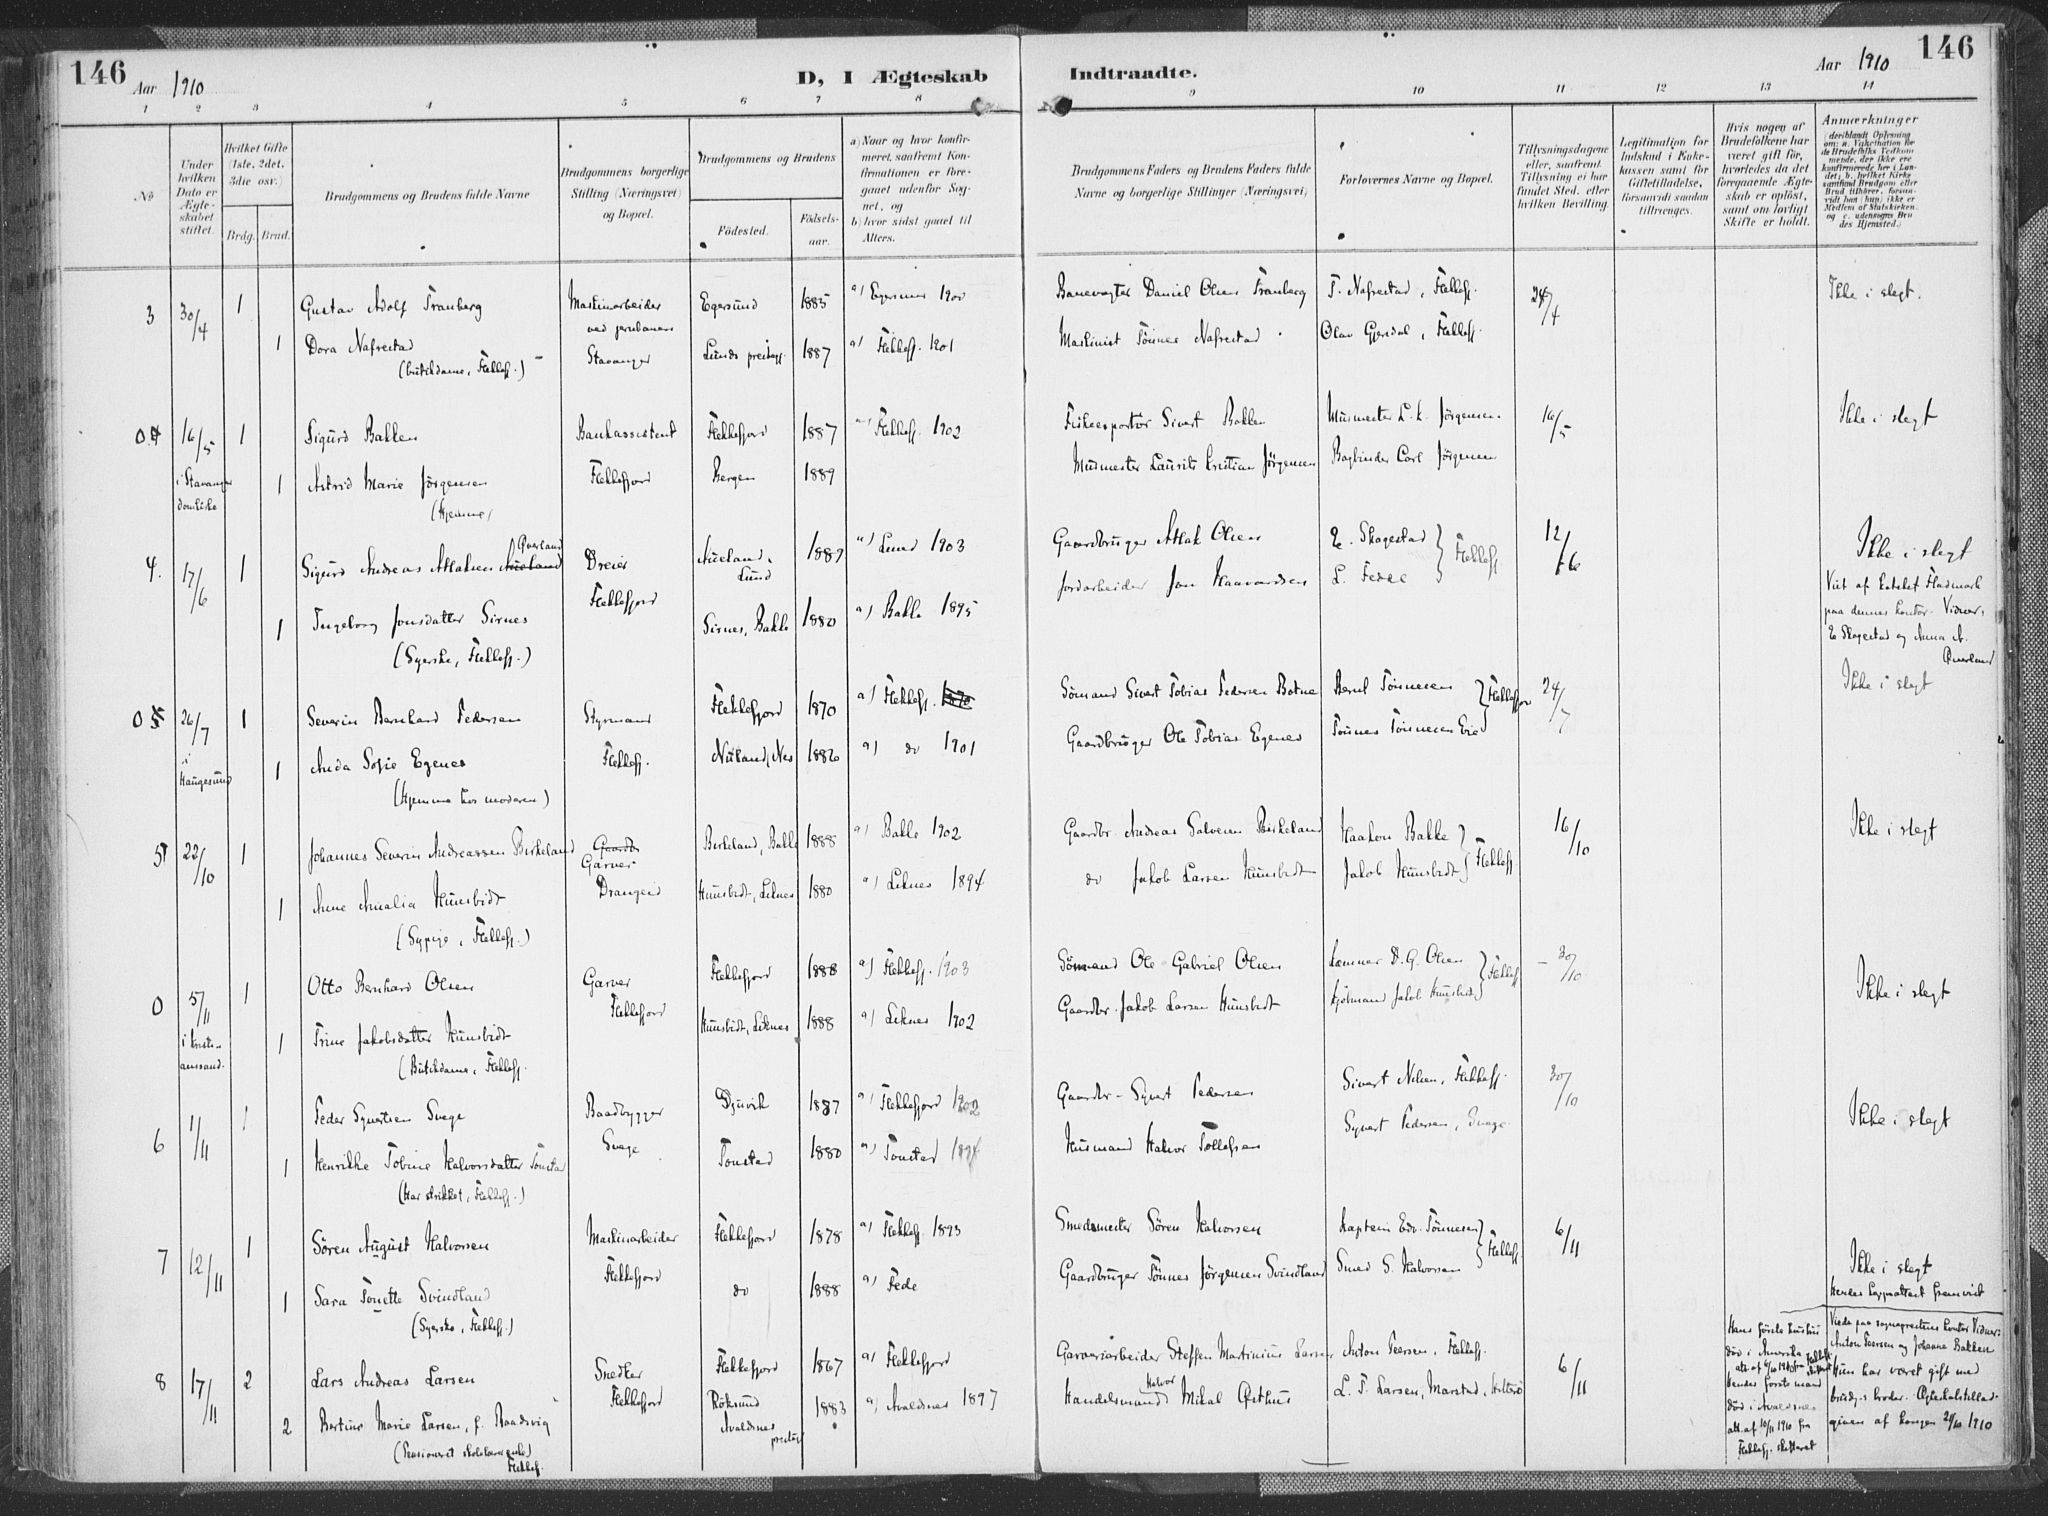 146
Aar 1910
D, I Ægteskab
Indtraadte.
Aar 1910
146
1 2 3 4 5 6 7 8 9 10 11 12 13 14
No
Under hvilken Dato er Ægteskabet stiftet.
Hvilket Gifte (1ste, 2det, 3die osv.)
Brdg. Brud.
Brudgommens og Brudens fulde Navne
Brudgommens borgerlige Stilling (Næringsvei) og Bopæl.
Brudgommens og Brudens
Födested.
Födselsaar.
a) Naar og hvor konfirmeret, saafremt Konfirmationen er foregaaet udenfor Sognet, og
b) hvor sidst gaaet til Alters.
Brudgommens Faders og Brudens Faders fulde Navne og borgerlige Stillinger (Næringsvei)
Forlovernes Navne og Bopæl.
Tillysningsdagene eller, saafremt Tillysning ei har fundet Sted, efter hvilken Bevilling.
Legitimation for Indskud i Enkekassen samt for Giftetilladelse, forsaavidt saadan tiltrænges.
Hvis nogen af Brudefolkene har været gift för, hvorledes da det foregaaende Ægteskab er oplöst, samt om lovligt Skifte er holdt.
Anmærkninger
(deriblandt Oplysning om: a. Vakcination for de Brudefolks Vedkommende, der ikke ere konfirmerede her i Landet; b. hvilket Kirkesamfund Brudgom eller Brud tilhörer, forsaavidt han (hun) ikke er Medlem af Statskirken, og c. udensogns Brudes Hjemsted.)
3 30/4 1 Gustav Adolf Tranberg Maskinarbeider ved jernbanen Egersund 1885 a) Egersund 1900 Banevogter Daniel Olsen Tranberg T. Nafrestad, Flekkefj. 24/4 Ikke i slegt.
1 Dora Nafrestad Stavanger Lunds prestegj. 1887 a) Flekkefj. 1901 Maskinist Tönnes Nafrestad Olav Gjersdal, Flekkefj.
(butikdame, Flekkefj.)
0 16/5 1 Sigurd Bakken Bankassistent Flekkefjord 1887 a) Flekkefj. 1902 Fiskeexportör Sivert Bakken Murmester L. K. Jörgensen 16/5 Ikke i slegt
i Stavanger domkirke 1 Astrid Marie Jörgensen Flekkefjord Bergen 1889 Murmester Laurits Kristian Jörgensen Bogbinder Carl Jörgensen
(Hjemme)
4. 17/6 1 Sigurd Andreas Atlaksen Överland Dreier Aueland, Lund 1889 a) Lund 1903 Gaardbruger Atlak Olsen E. Skagestad 12/6 Ikke i slegt
1 Ingeborg Jonsdatter Sirnes Flekkefjord Sirnes, Bakke 1880 a) Bakke 1895 Jordarbeider Jon Haavardsen L. Fedde Flekkefj.
(Syerske, Flekkefj.)
Viet af kateket Fladmark
paa dennes kontor. Vidner:
E Skagestad og Anna A.
Överland
0 26/7 1 Severin Bernhard Pedersen Styrmand Flekkefjord 1870 a) Flekkefj. Sömand Sivert Tobias Pedersen Botne Bernt Tönnesen 24/7 Ikke i slegt
i Haugesund 1 Anda Sofie Egenes Flekkefj. Nuland, Nes 1886 a) do 1901 Gaardbruger Ole Tobias Egenes Tönnes Tönnesen Eie Flekkefjord
(Hjemme hos moderen)
5 22/10 1 Johannes Severin Andreassen Birkeland Garver Birkeland, Bakke 1888 a) Bakke 1902 Gaardbr. Andreas Salvesen Birkeland Haakon Bakke 16/10 Ikke i slegt
1 Anne Amalia Hunsbedt Drangeid Hunsbedt, Liknes 1880 a) Liknes 1894 do Jakob Larsen Hunsbedt Jakob Hunsbedt Flekkefj.
(Sypige, Flekkefj.)
0 5/11 1 Otto Bernhard Olsen Garver Flekkefjord 1888 a) Flekkefj. 1903 Sömand Ole Gabriel Olsen Kæmner O. G. Olsen 30/10 Ikke i slegt
i Kristiansand. 1 Trine Jakobsdatter Hunsbedt Flekkefjord Hunsbedt, Liknes 1888 a) Liknes 1902 Gaardbr. Jakob Larsen Hunsbedt Kjöbmand Jakob Hunsbedt Flekkefj
(Butikdame, Flekkefj.
6 1/11 1 Peder Syvertsen Svege Baadbygger Djuvik 1887 a) Flekkefjord 1902 Gaardbr. Syvert Pedersen Sivert Nilsen, Flekkefj. 30/10 Ikke i slegt
1 Henrikke Tobine Halvorsdatter Tonstad Svege Tonstad 1880 a) Tonstad 1894 Husmand Halvor Tollefsen Syvert Pedersen, Svege
(Har strikket, Flekkefj.)
7 12/11 1 Sören August Halvorsen Maskinarbeider Flekkefjord 1878 a) Flekkefj. 1893 Smedmester Sören Halvorsen Kaptein Edv. Tönnesen 6/11 Ikke i slegt
1 Sara Tonette Svindland Flekkefjord do 1888 a) Fede Gaardbruger Tönnes Jörgensen Svindland Smed S. Halvorsen Flekkefj
(Syerske, Flekkefj.)
Hendes lægeattest fremvist
8 17/11 2 Lars Andreas Larsen Snedker Flekkefjord 1867 a) Flekkefjord Garveriarbeider Steffen Martinius Larsen Anton Teersen, Flekkefj. 6/11
2 Bertine Marie Larsen, f. Raadsvig Flekkefjord Röksund Avaldsnes prestegj 1883 a) Avaldsnes 1897 Handelsmand Halvor Mikal Östhus L. T. Larsen, Marstad, Hitterö
(Pensioneret skolelærerenke) Flekkef.
Hans första hustru död i Amerika
Hendes første mand död i Avaldsnes
att. af 10/11 1910 fra Flekkefj. skifteret
Viede paa sogneprestens kontor Vidner: Anton Teersen og Johanne Bakken
Hun har været gift med brudg.s broder. Ægteskabstilladelse given af kongen 21/10 1910